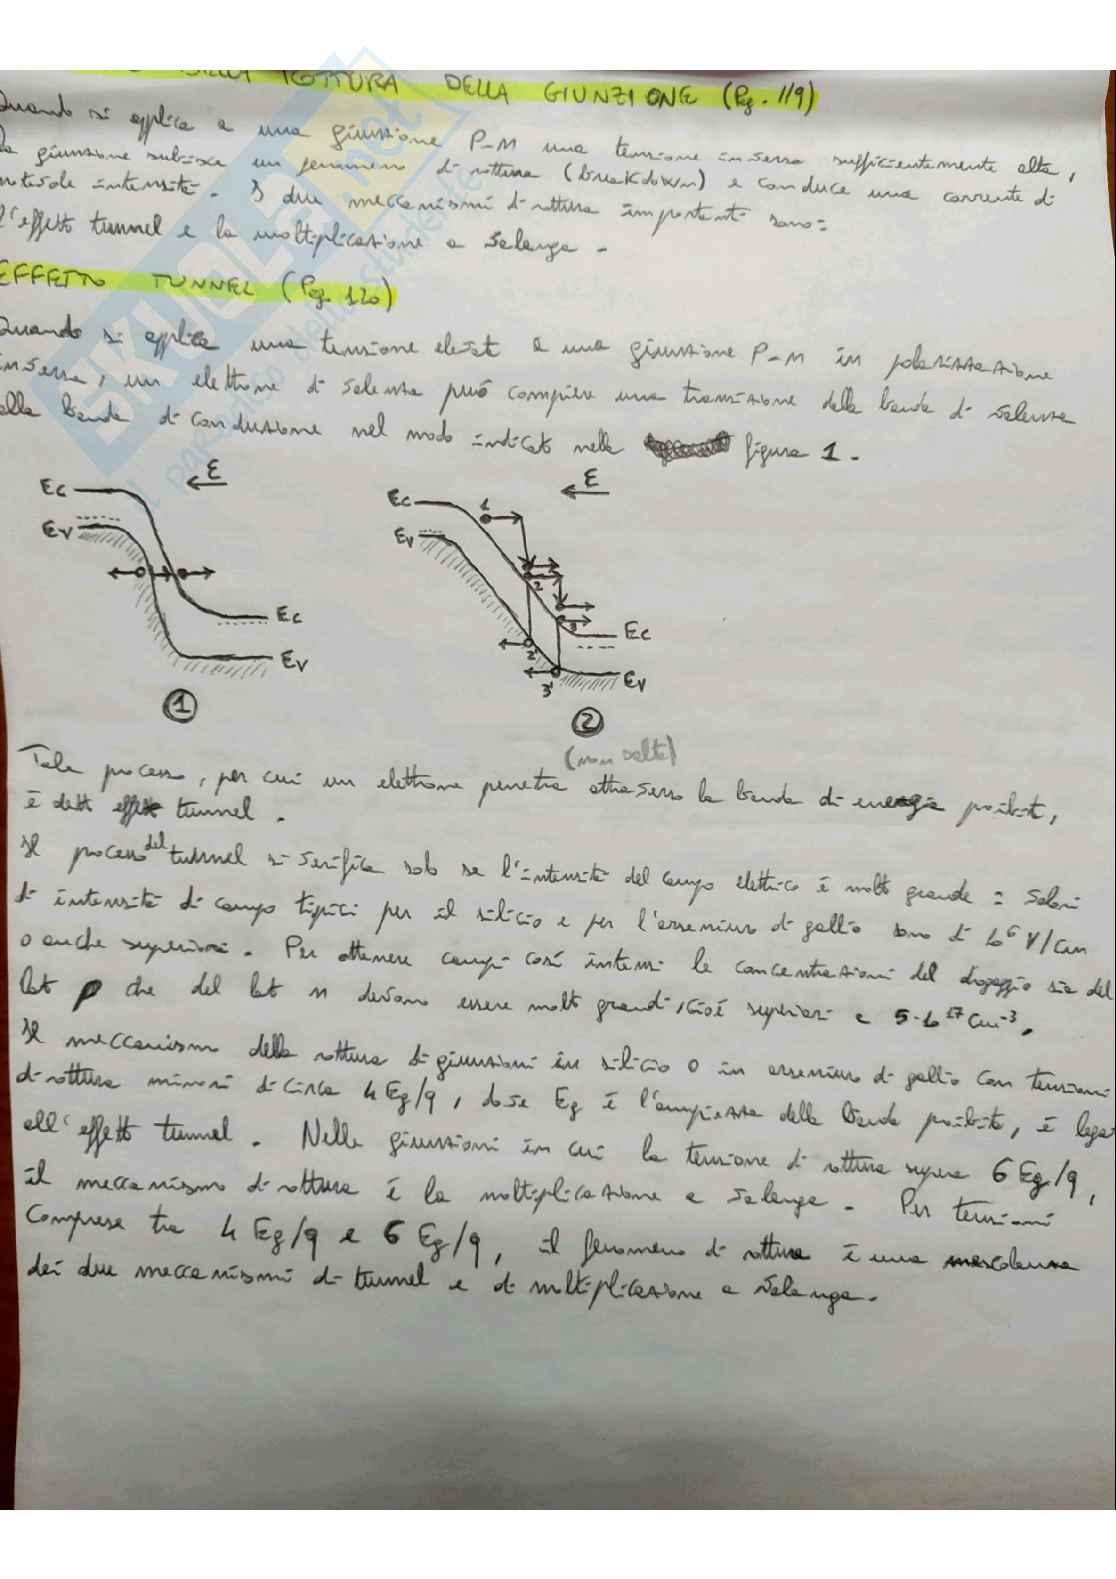 DELLA ROTTURA DELLA GIUNZIONE (Pag. 119)
Quando si applica a una giunzione P-N una tensione inversa sufficientemente alta,
la giunzione subisce un fenomeno di rottura (breakdown) e conduce una corrente di
notevole intensità. I due meccanismi di rottura importanti sono:
l'effetto tunnel e la moltiplicazione a valanga.
EFFETTO TUNNEL (Pag. 120)
Quando si applica una tensione elevata a una giunzione P-n in polarizzazione
inversa, un elettrone di valenza può compiere una transizione dalla banda di valenza
alla banda di conduzione nel modo indicato nella figura 1.
Ec
Ev
E
Ec
Ev
1
Ec
Ev
E
1
2
2'
3
3'
Ec
Ev
2
(non valta)
Tale processo, per cui un elettrone penetra attraverso la banda di energia proibita,
è detto effetto tunnel.
Il processo del tunnel si verifica solo se l'intensità del campo elettrico è molto grande: valori
di intensità di campo tipici per il silicio e per l'arseniuro di gallio sono di 10⁶ V/cm
o anche superiori. Per ottenere campi così intensi le concentrazioni del drogaggio sia del
lato p che del lato n devono essere molto grandi, cioè superiori a 5·10¹⁷ cm⁻³.
Il meccanismo della rottura di giunzioni in silicio o in arseniuro di gallio con tensioni
di rottura minori di circa 4 Eg/q, dove Eg è l'ampiezza della banda proibita, è legat
all'effetto tunnel. Nelle giunzioni in cui la tensione di rottura supera 6 Eg/q,
il meccanismo di rottura è la moltiplicazione a valanga. Per tensioni
comprese tra 4 Eg/q e 6 Eg/q, il fenomeno di rottura è una mescolanza
dei due meccanismi di tunnel e di moltiplicazione a valanga.
SKUOLA.net